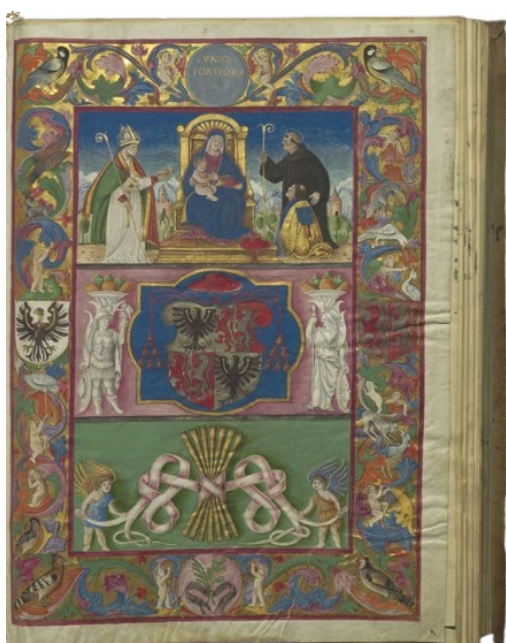 VNIO
FORTIOR